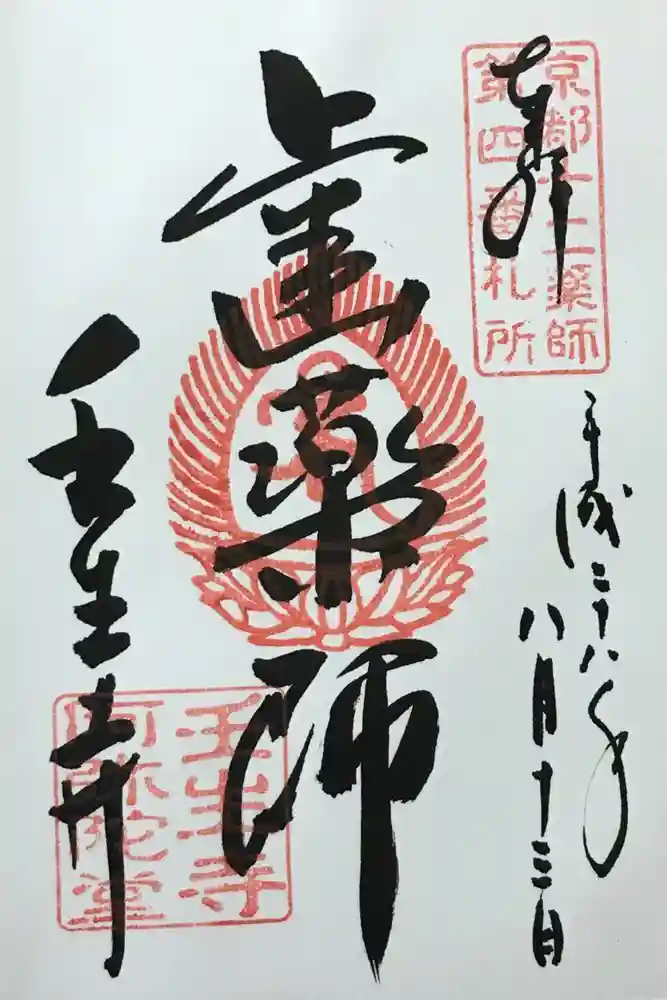 京都十二薬師
第四番札所
奉拝
平成二十八年
八月十三日
歯薬師
壬生寺
壬生寺
阿弥陀堂